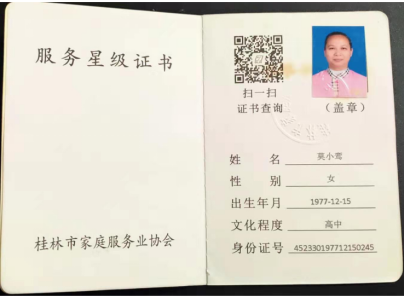 服务星级证书
桂林市家庭服务业协会
扫一扫
证书查询
（盖章）
姓名 莫小莺
性别 女
出生年月 1977-12-15
文化程度 高中
身份证号 452330197712150245